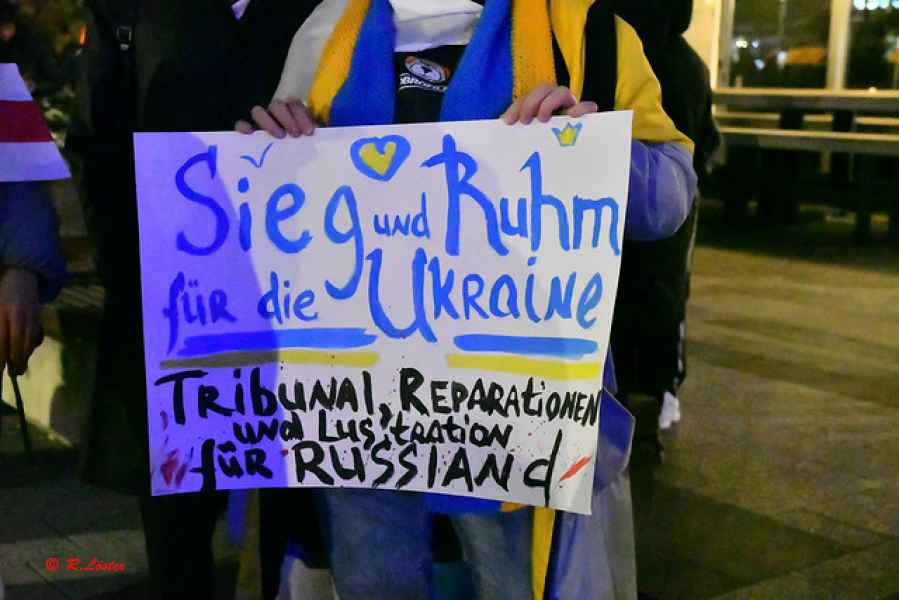 Sieg und Ruhm
für die Ukraine
Tribunal, Reparationen
und Lustration
für Russland
© R.Löster